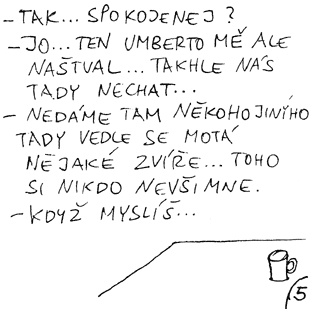 -TAK... SPOKOJENEJ?
-JO... TEN UMBERTO MĚ ALE
NAŠTVAL... TAKHLE NÁS
TADY NECHAT...
- NEDÁME TAM NĚKOHO JINÝHO
TADY VEDLE SE MOTÁ
NĚJAKÉ ZVÍŘE... TOHO
SI NIKDO NEVŠIMNE.
-KDYŽ MYSLÍŠ...
5